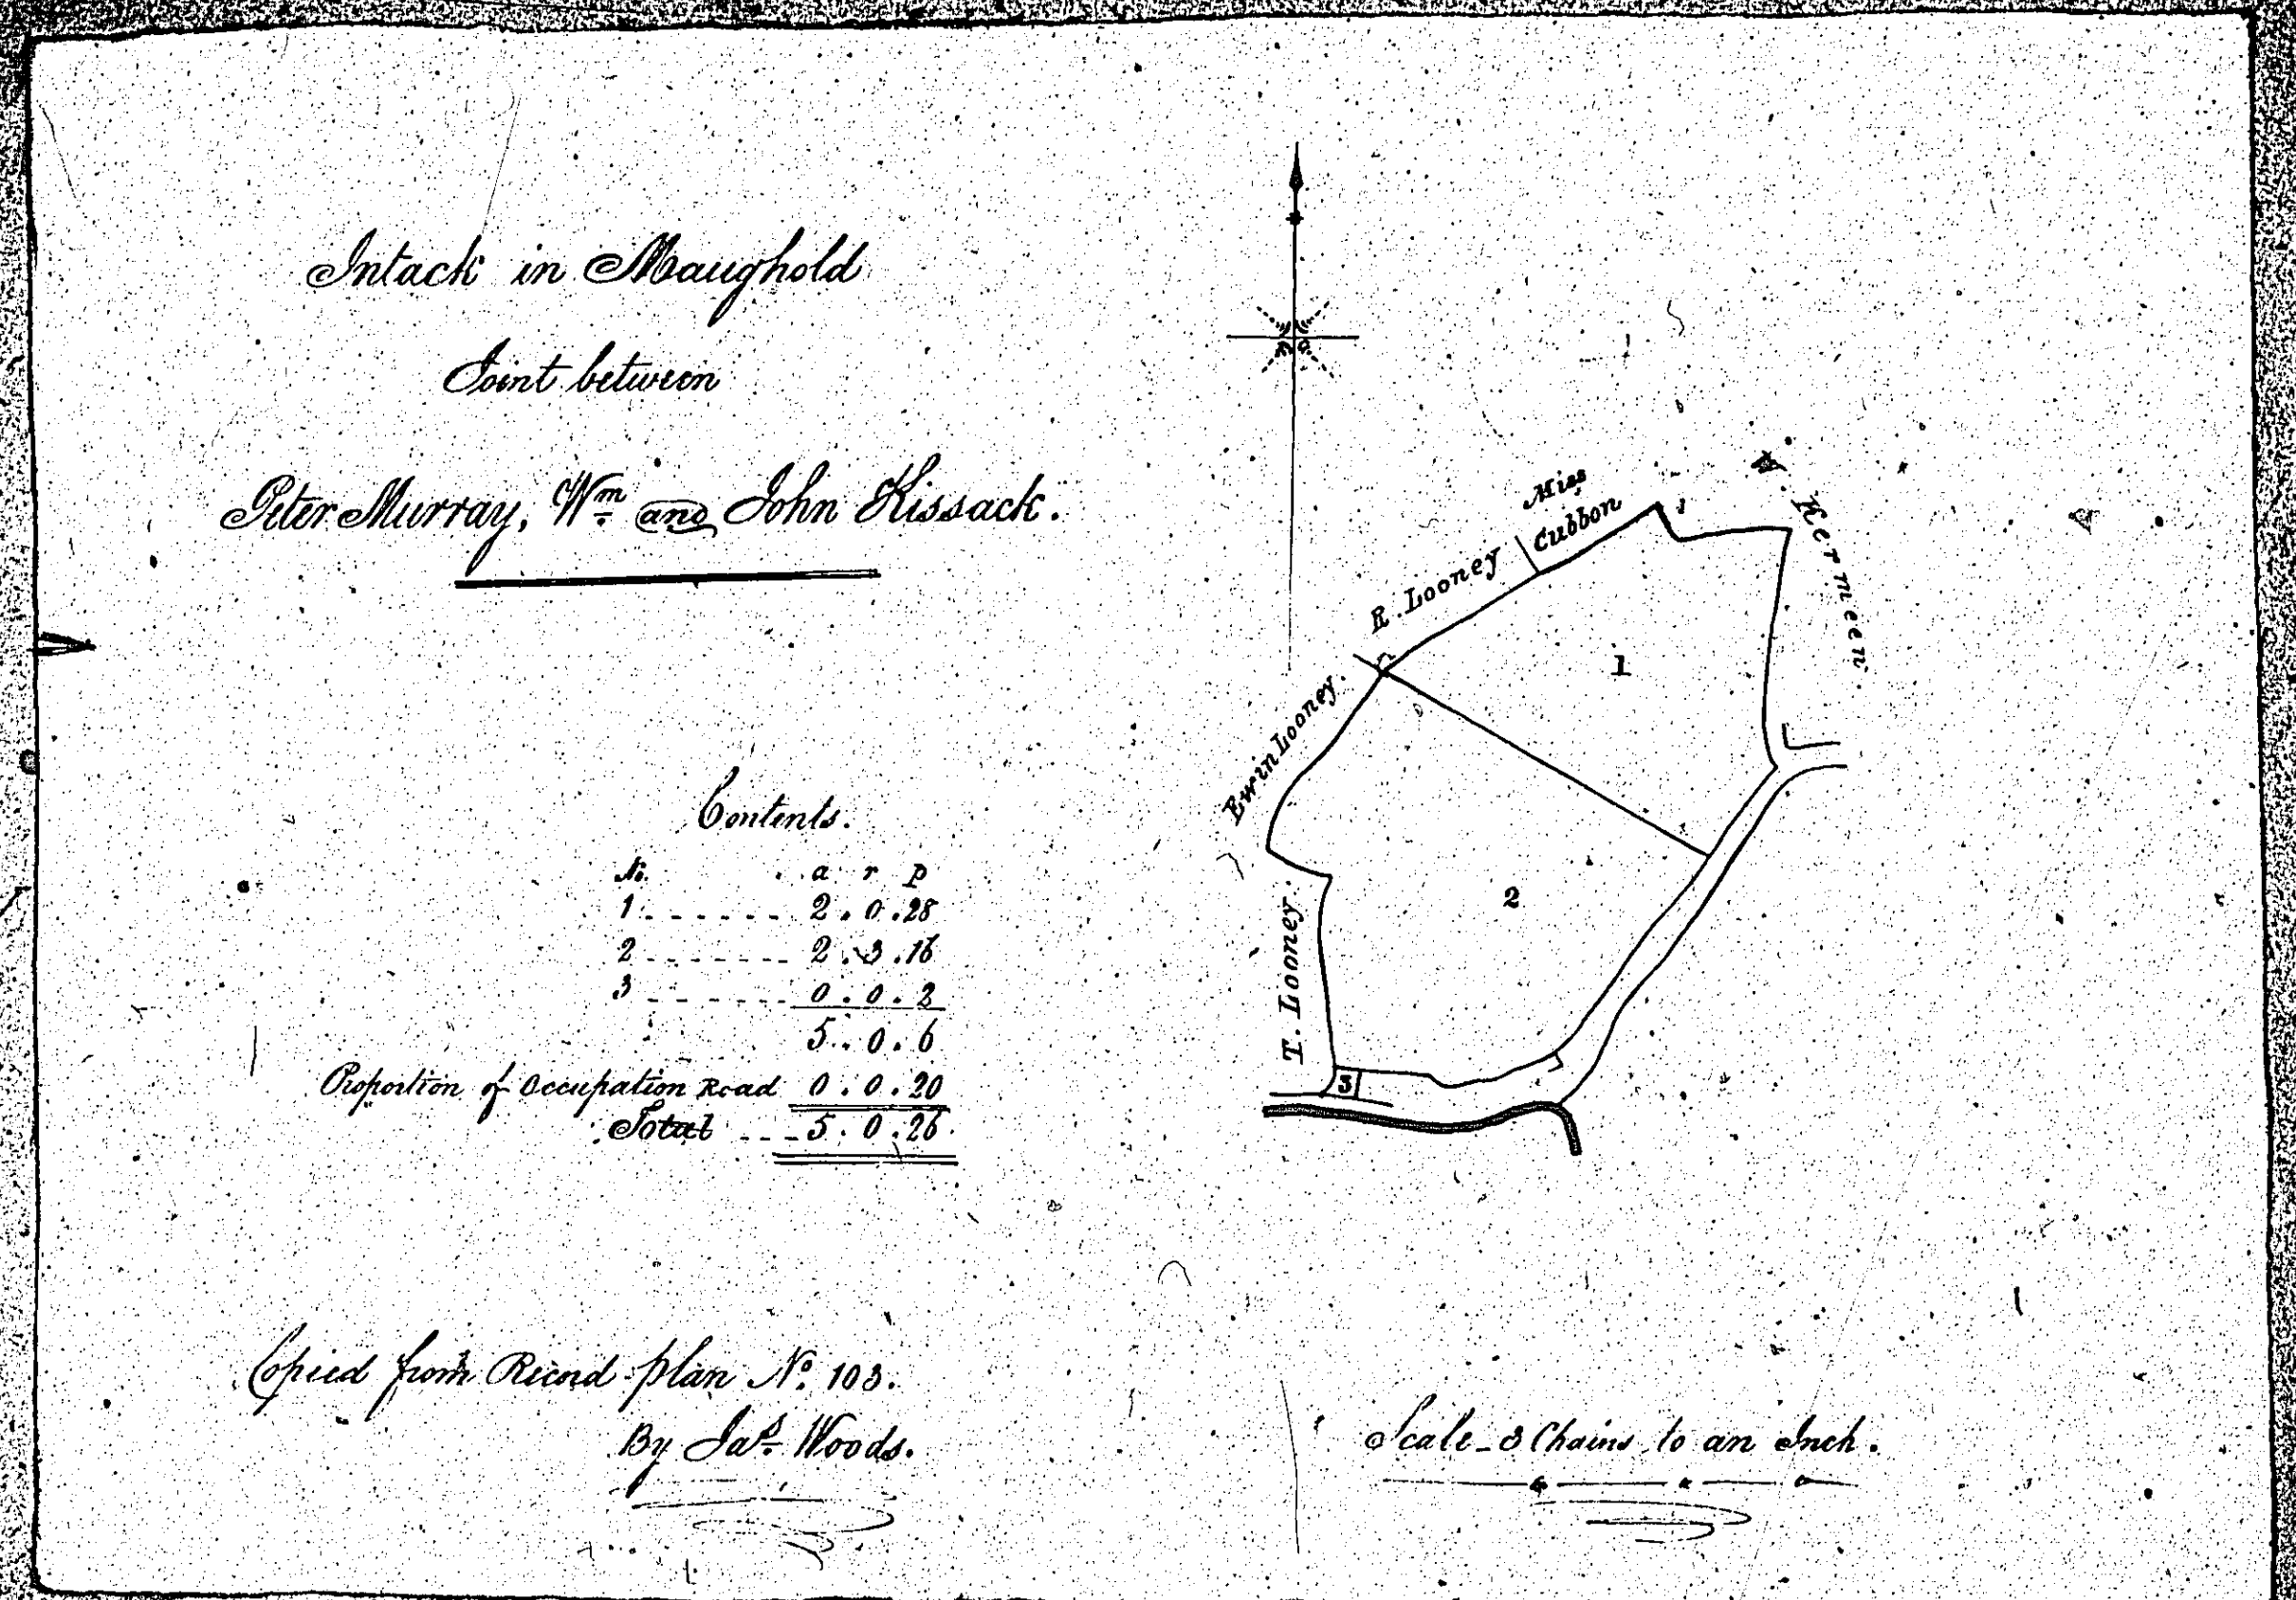 Intack in Maughold
Joint between
Peter Murray, Wm and John Kissack.
Contents.
No. a r p
1 2.0.28
2 2.3.16
3 0.0.2
5.0.6
Proportion of Occupation Road 0.0.20
Total 5.0.26
Copied from Record plan No. 103.
By Jas. Woods.
Miss
Cubbon
R. Looney
Kermeen.
1
Ewin Looney.
2
T. Looney.
3
Scale - 3 Chains to an Inch.